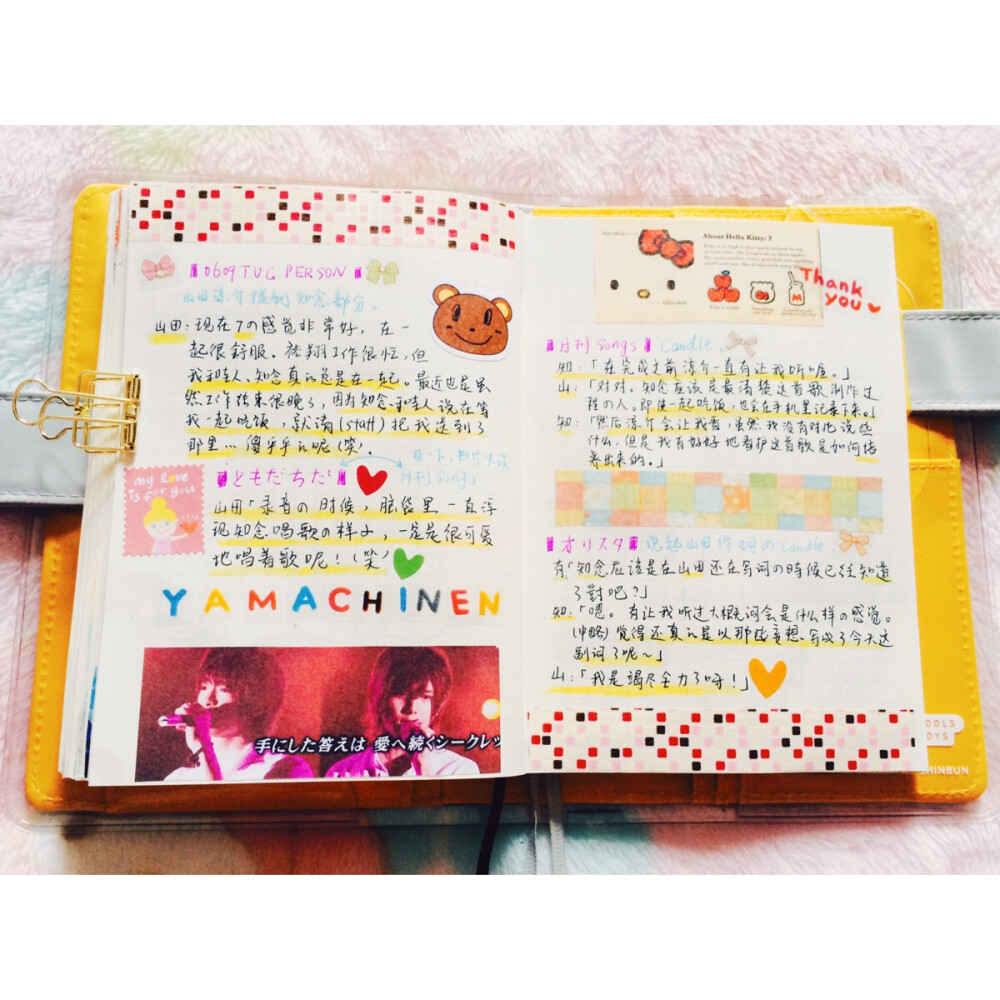 0609 TVG PERSON
山田涼介提到知念部分。
山田：现在7の感觉非常好，在一
起很舒服。祐翔工作很忙，但
我和圭人、知念真的总是在一起。最近也是虽
然工作结束很晚了，因为知念和圭人说在等
我一起吃饭，就请(staff)把我送到了
那里…傻乎乎的呢(笑)。
ともだちだ
月刊songs
my love
is for you
山田「录音の时候，脑袋里一直浮
现知念唱歌の样子，一定是很可爱
地唱着歌呢！(笑)
YAMACHINEN
手にした答えは 愛へ続くシークレッ
About Hello Kitty: 2
Thank
you
月刊songs Candle.
知：「在完成之前凉介一直有让我听喔。」
山：「对对。知念应该是最清楚这首歌制作过
程の人。即使一起吃饭，也会在手机里记录下来。」
知：「然后凉介会让我看，虽然我没有对他说些
什么，但是我有好好地看护这首歌是如何培
养出来的。」
オリスタ 说起山田作词のcandle.
有「知念应该是在山田还在写词の時候已经知道
了對吧？」
知：「嗯。有让我听过大概歌词会是什么样の感觉。
(中略) 觉得还真的是以那些妄想、写成了今天这
副词了呢～」
山：「我是竭尽全力了呀！」
OOLS
OYS
SHINBUN